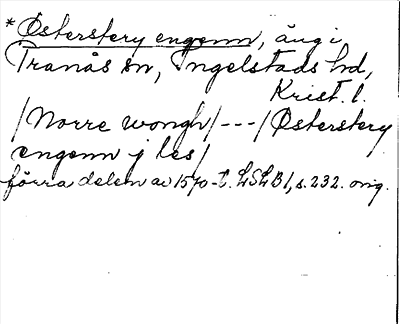 *Österstery engenn, äng i
Tranås sn, Ingelstads hd,
Krist. l.
/Norre wongh/---/Österstery
engenn j les/
förra delen av 1570-t. LSLB 1, s. 232. orig.